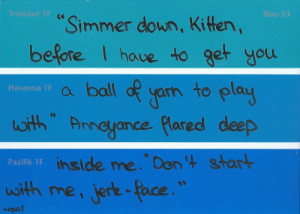 Trinidad 1F Blau R3
"Simmer down, Kitten,
before I have to get you
Havanna 1F
a ball of yarn to play
with" Annoyance flared deep
Pazifik 1F
inside me. "Don't start
with me, jerk-face."